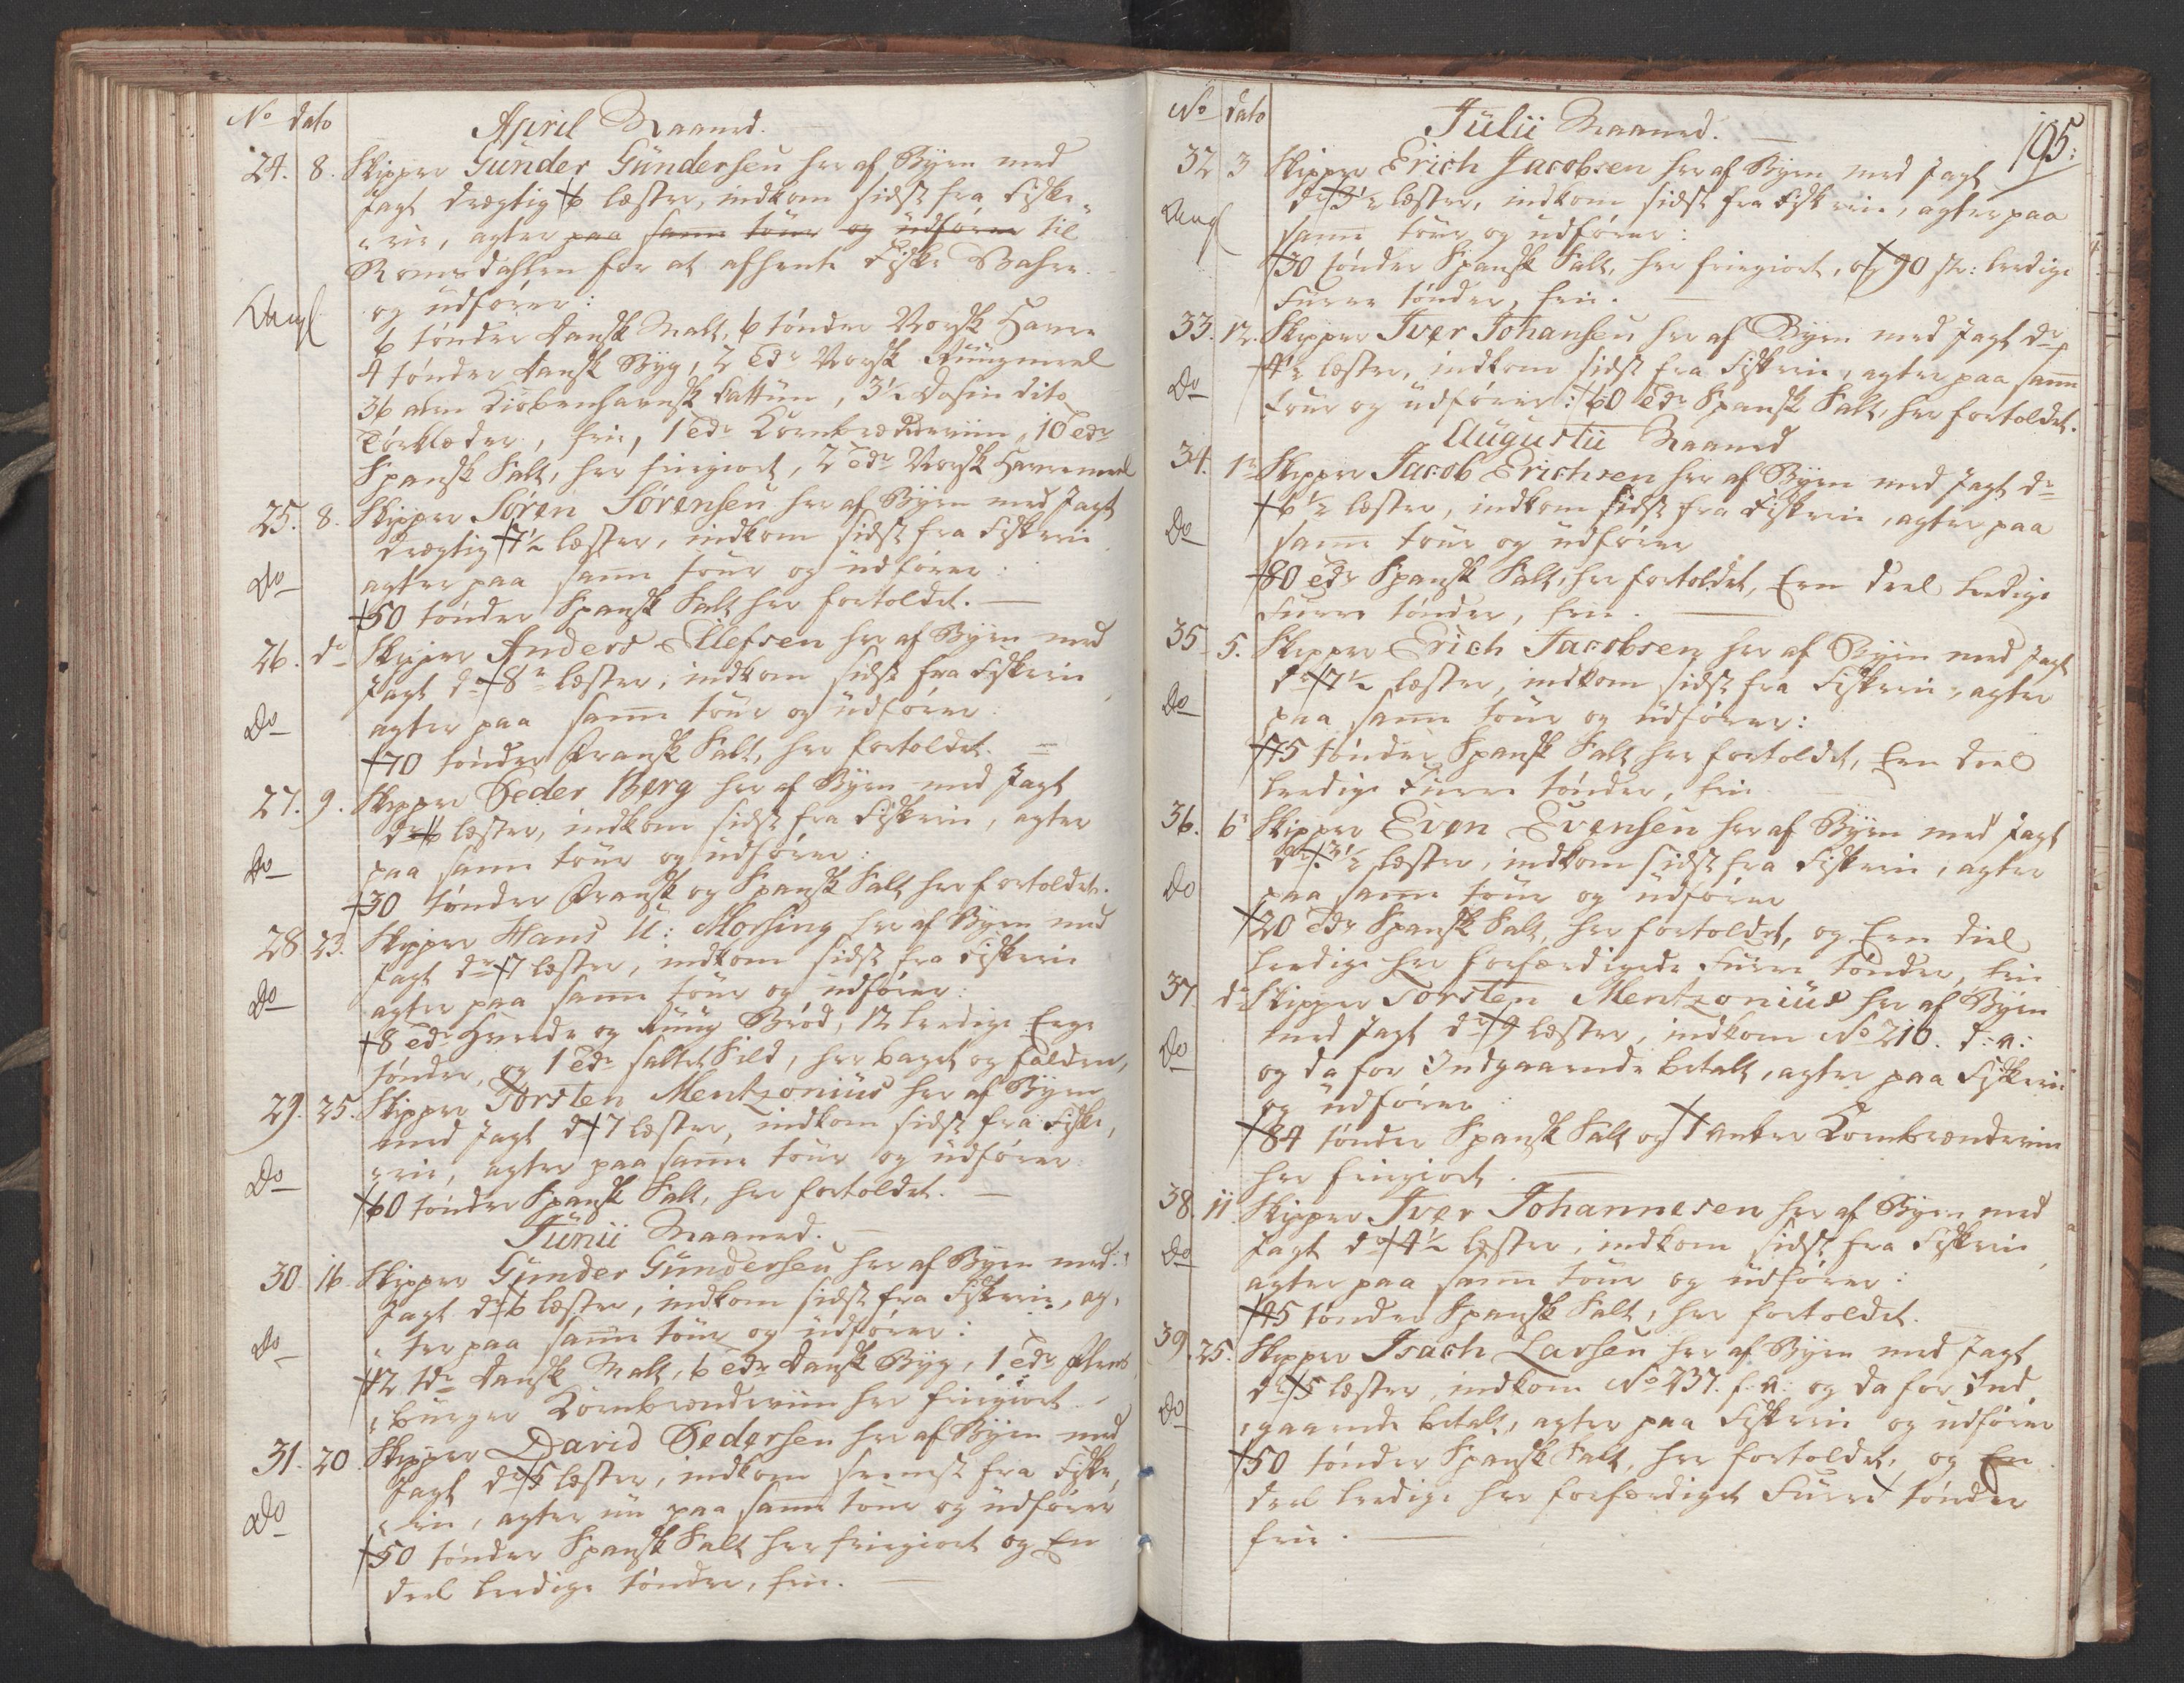 No dato
April Maaned.
24. 8. Skipper Günder Gündersen her af Byen med
Jagt drægtig 6 læster, indkom sidst fra Fiske,,
,,rie, agter paa samme tour og udfører til
Romsdahlen for at afhente Fiske Vahre
og udfører:
6 tönder Dansk Malt, 6 tönder Norsk Havre
4 tönder Dansk Byg, 2 tdr Norsk Ruugmeel
36 alen Kiøbenhavnsk Cattun, 3½ Dosin dito
Tørklæder, frie, 1 tdr Kornbrændeviin, 10 tdr
Spansk Salt, her friegiort, 2 tdr Norsk Havremeel
25. 8. Skipper Sören Sörensen her af Byen med Jagt
drægtig 7½ læster, indkom sidst fra Fiskerie
Do agter paa samme tour og udfører:
50 tönder Spansk Salt her fortoldet.
26. do Skipper Anders Ellefsen her af Byen med
Jagt dr 8 læster, indkom sidst fra Fiskerie
Do agter paa samme tour og udfører:
70 tönder Fransk Salt, her fortoldet.
27. 9. Skipper Peder Berg her af Byen med Jagt
dr 6 læster, indkom sidst fra Fiskerie, agter
Do paa samme tour og udfører:
30 tönder Fransk og Spansk Salt her fortoldet.
28. 23. Skipper Hans U: Morsing her af Byen med
Jagt dr 7 læster, indkom sidst fra Fiskerie
Do agter paa samme tour og udfører:
8 tdr Hvede og Ruug Bröd, 12 ledige Ege
tönder, og 1 tdr saltet Sild, her baget og falden,
29. 25. Skipper Torsten Mentzonius her af Byen
med Jagt dr 7 læster, indkom sidst fra Fiske,
Do ,,rie, agter paa samme tour og udfører
60 tönder Spansk Salt, her fortoldet.
Junii Maaned.
30. 16. Skipper Günder Gündersen her af Byen med
Jagt dr 6 læster, indkom sidst fra Fiskerie, ag,
Do ,,ter paa samme tour og udfører:
12 tdr Dansk Malt, 6 tdr Dansk Byg, 1 tdr Flens
,,burger Kornbrændeviin her friegiort
31. 20. Skipper David Pedersen her af Byen med
Jagt dr 5 læster, indkom senest fra Fiske,
Do ,,rie, agter nu paa samme tour og udfører
50 tönder Spansk Salt her friegiort og En
deel ledige tönder, frie.
No dato
195:
Julii Maaned.
32 3 Skipper Erich Jacobsen her af Byen med Jagt
dr 3½ læster, indkom sidst fra Fiskerie, agter paa
samme tour og udfører:
30 tönder Spansk Salt, her friegiort, og 90 st: ledige
Furre tönder, frie.
33. 12. Skipper Iver Johansen her af Byen med Jagt dr
4½ læster, indkom sidst fra Fiskerie, agter paa samme
Do tour og udfører: 60 tdr Spansk Salt, her fortoldet.
Augustii Maaned
34. 1. Skipper Jacob Erichsen her af Byen med Jagt dr
6½ læster, indkom sidst fra Fiskerie, agter paa
Do samme tour og udfører
80 tdr Spansk Salt, her fortoldet, Een deel ledige
Furre tönder, frie.
35 5. Skipper Erich Jacobsen her af Byen med Jagt
dr 7½ læster, indkom sidst fra Fiskerie, agter
Do paa samme tour og udfører:
75 tönder Spansk Salt her fortoldet, Een deel
ledige Furre tönder, frie.
36. 6 Skipper Even Evensen her af Byen med Jagt
dr 3½ læster, indkom sidst fra Fiskerie, agter
Do paa samme tour og udfører
20 tdr Spansk Salt, her fortoldet, og Een deel
ledige her forfærdigede Furre tönder, frie
37. do Skipper Torsten Mentzonius her af Byen
med Jagt dr 9 læster, indkom No 210. d: a:
Do og da for Indgaaende betalt, agter paa Fiskerie
og udfører:
84 tönder Spansk Salt og 1 anker Kornbrændeviin
her friegiort.
38. 11 Skipper Iver Johannesen her af Byen med
Do Jagt dr 4½ læster, indkom sidst fra Fiskerie,
agter paa samme tour og udfører:
45 tönder Spansk Salt, her fortoldet.
39. 25. Skipper Isach Larsen her af Byen med Jagt
dr 5 læster, indkom No 237. f: a: og da for Ind,
Do ,,gaaende betalt, agter paa Fiskerie og udfører
50 tönder Spansk Salt, her fortoldet, og En
deel ledige her forfærdiget Furre tönder
frie.